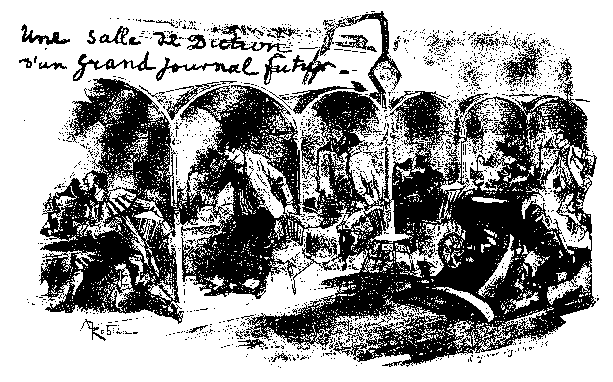 Une Salle de Diction
d'un Grand Journal futur.
A Robida